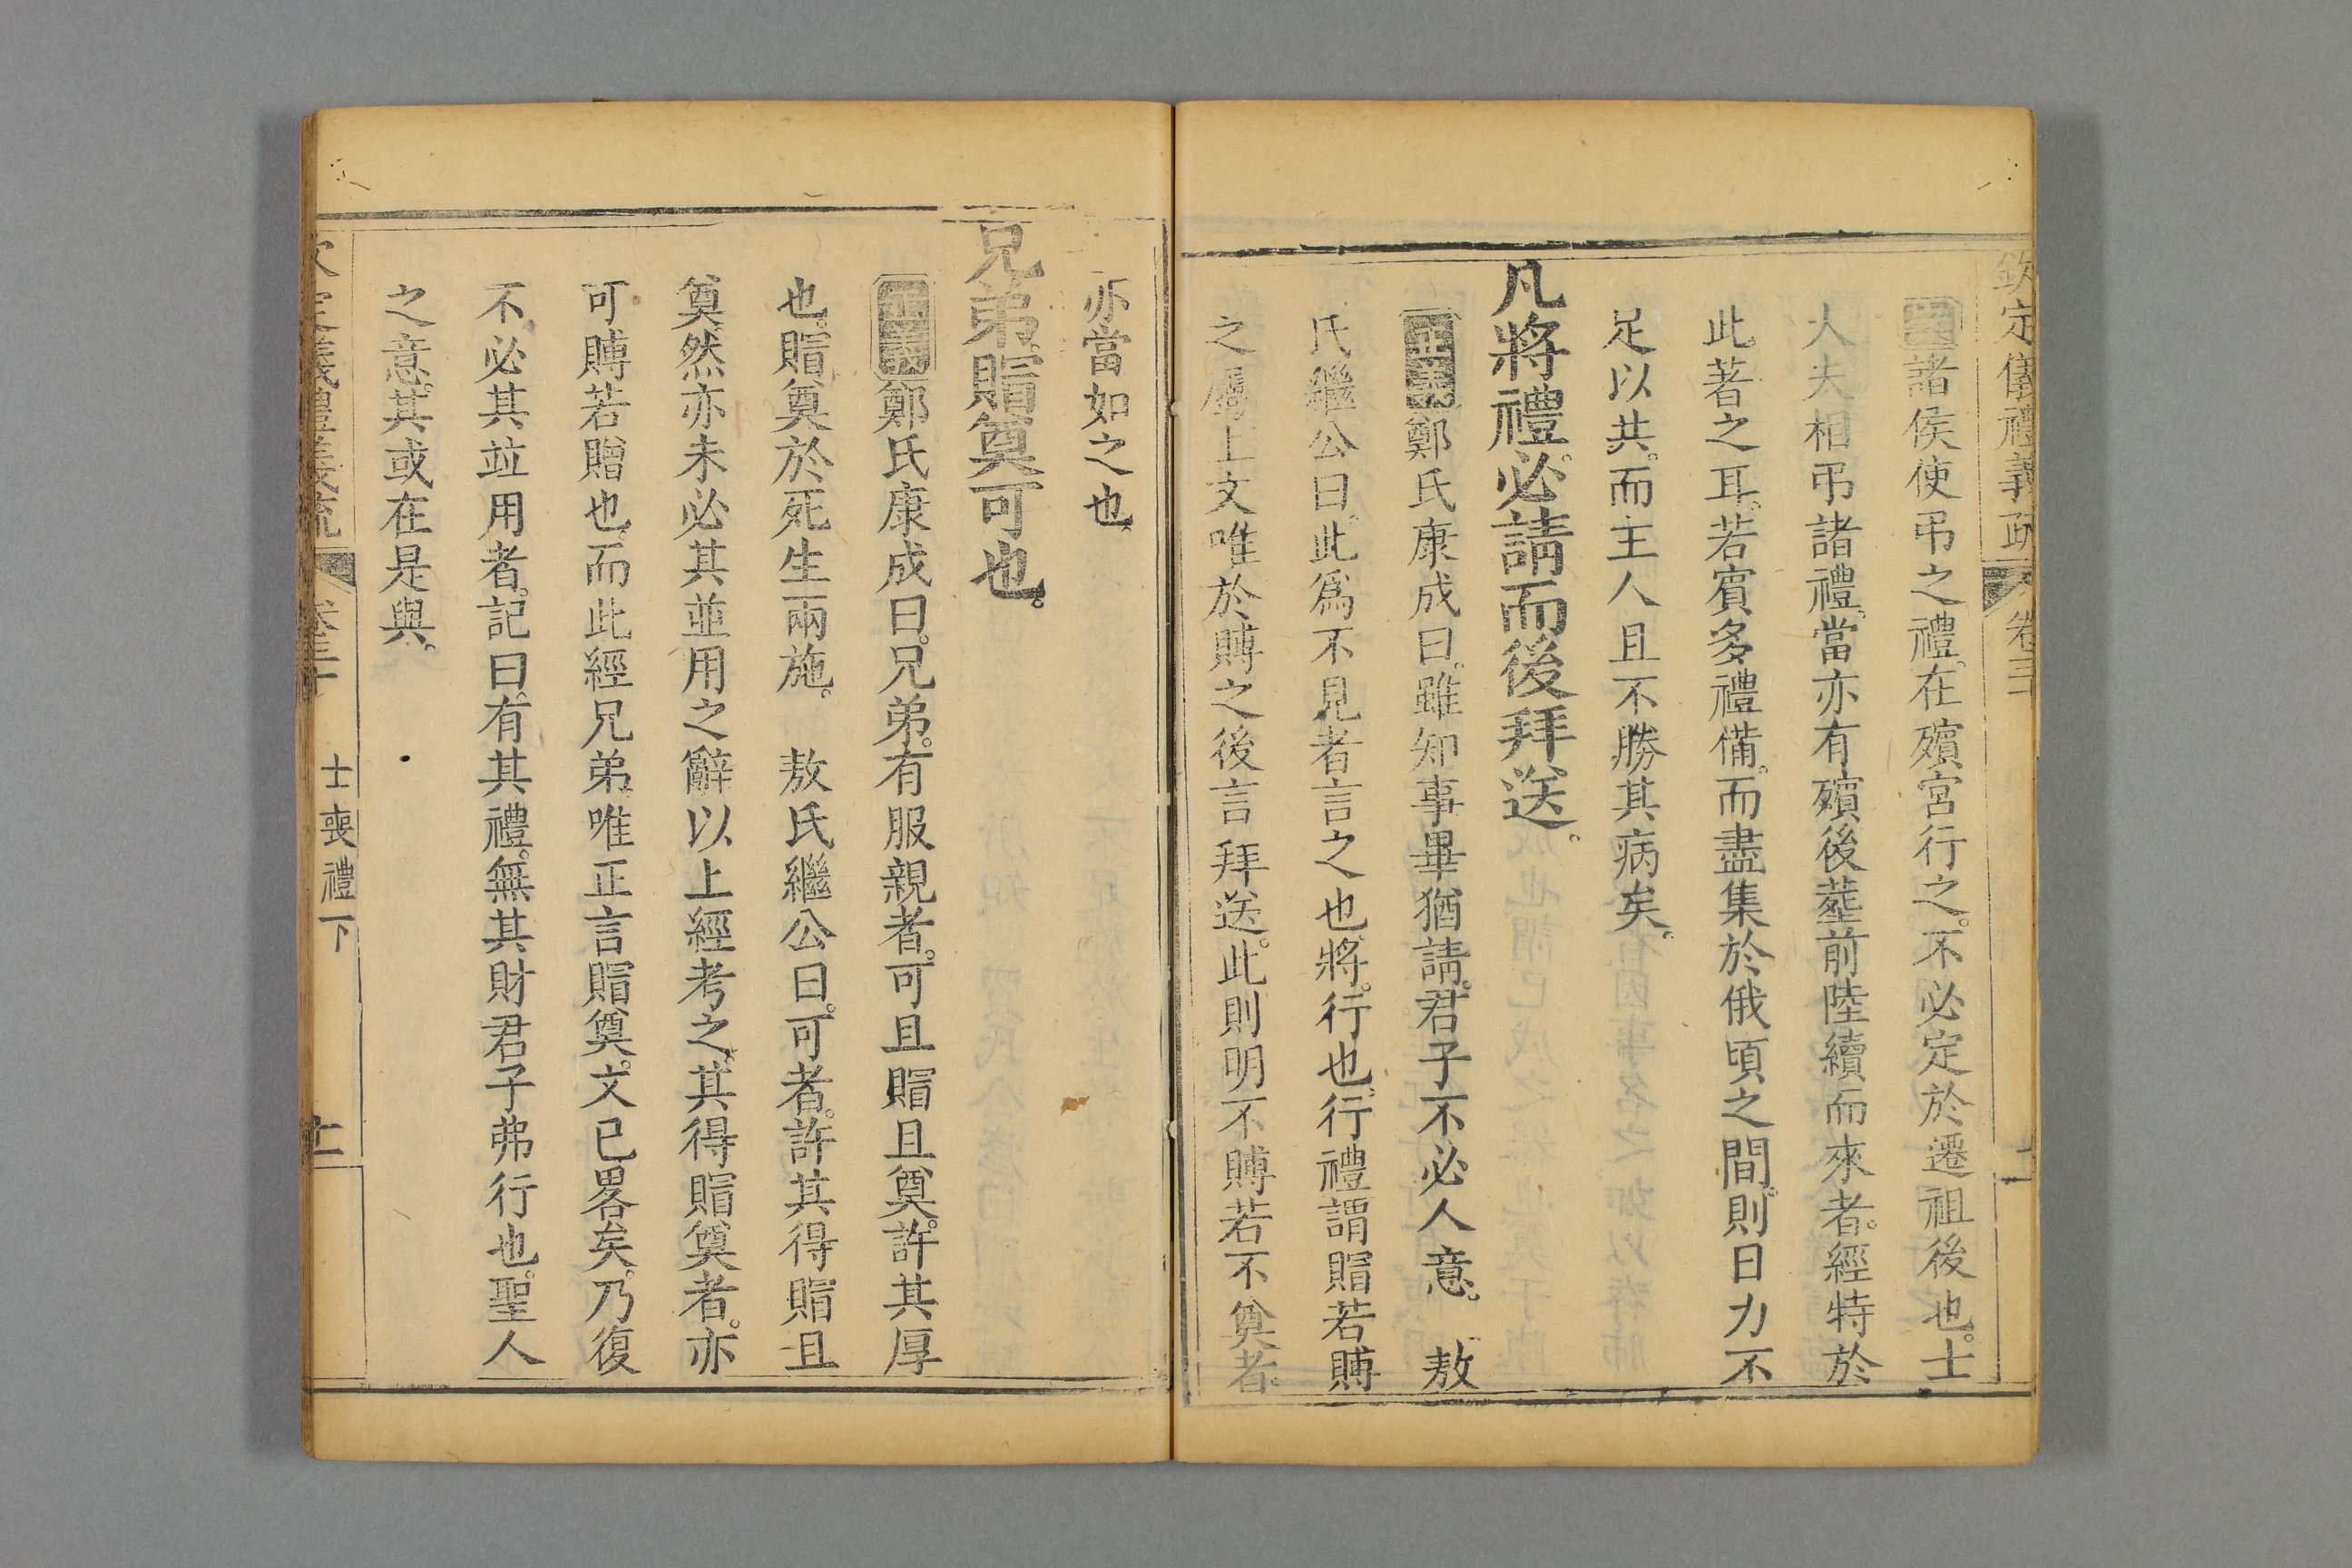 欽定儀禮義疏 卷三十
諸侯使弔之禮。在殯宮行之。不必定於遷祖後也。士
大夫相弔諸禮。當亦有殯後塟前陸續而來者。經特於
此著之耳。若賓多禮備。而盡集於俄頃之間。則日力不
足以共。而主人且不勝其病矣。
凡將禮。必請而後拜送。
正義鄭氏康成曰。雖知事畢猶請。君子不必人意。 敖
氏繼公曰。此爲不見者言之也。將。行也。行禮謂賵若賻
之屬。上文唯於賻之後言拜送。此則明不賻若不奠者。
亦當如之也。
兄弟賵奠可也。
正義鄭氏康成曰。兄弟。有服親者。可且賵且奠。許其厚
也。賵奠於死生兩施。 敖氏繼公曰。可者。許其得賵且
奠。然亦未必其並用之辭。以上經考之。其得賵奠者。亦
可賻若贈也。而此經兄弟。唯正言賵奠。文已畧矣。乃復
不必其竝用者。記曰。有其禮。無其財。君子弗行也。聖人
之意。其或在是與。
欽定儀禮義疏 卷三十 士喪禮下